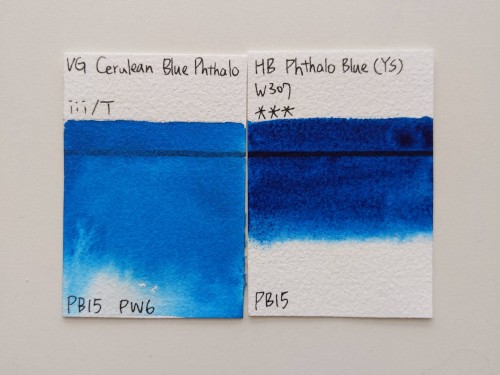 VG Cerulean Blue Phthalo
iii/T
PB15 PW6
HB Phthalo Blue (YS)
W307
***
PB15